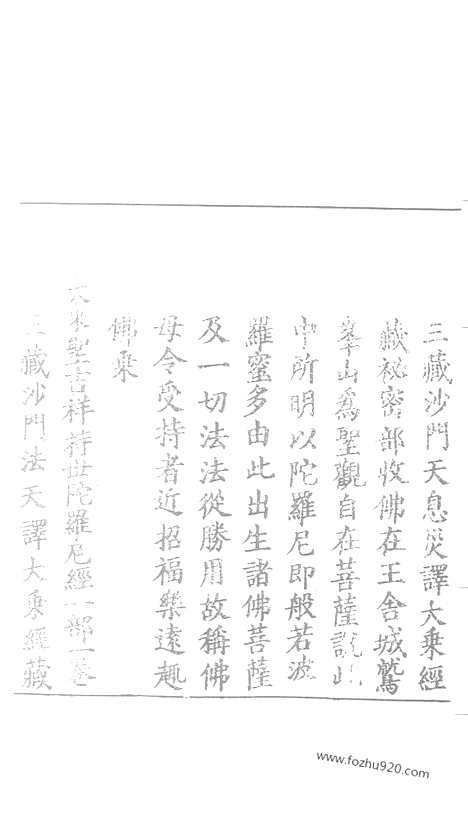 三藏沙門天息災譯大乘經
藏祕密部收佛在王舍城鷲
峯山為聖觀自在菩薩說此
中所明以陀羅尼即般若波
羅蜜多由此出生諸佛菩薩
及一切法法從勝用故稱佛
母令受持者近招福樂遠趣
佛乘
大乘聖吉祥持世陀羅尼經一部一卷
三藏沙門法天譯大乘經藏
www.fozhu920.com